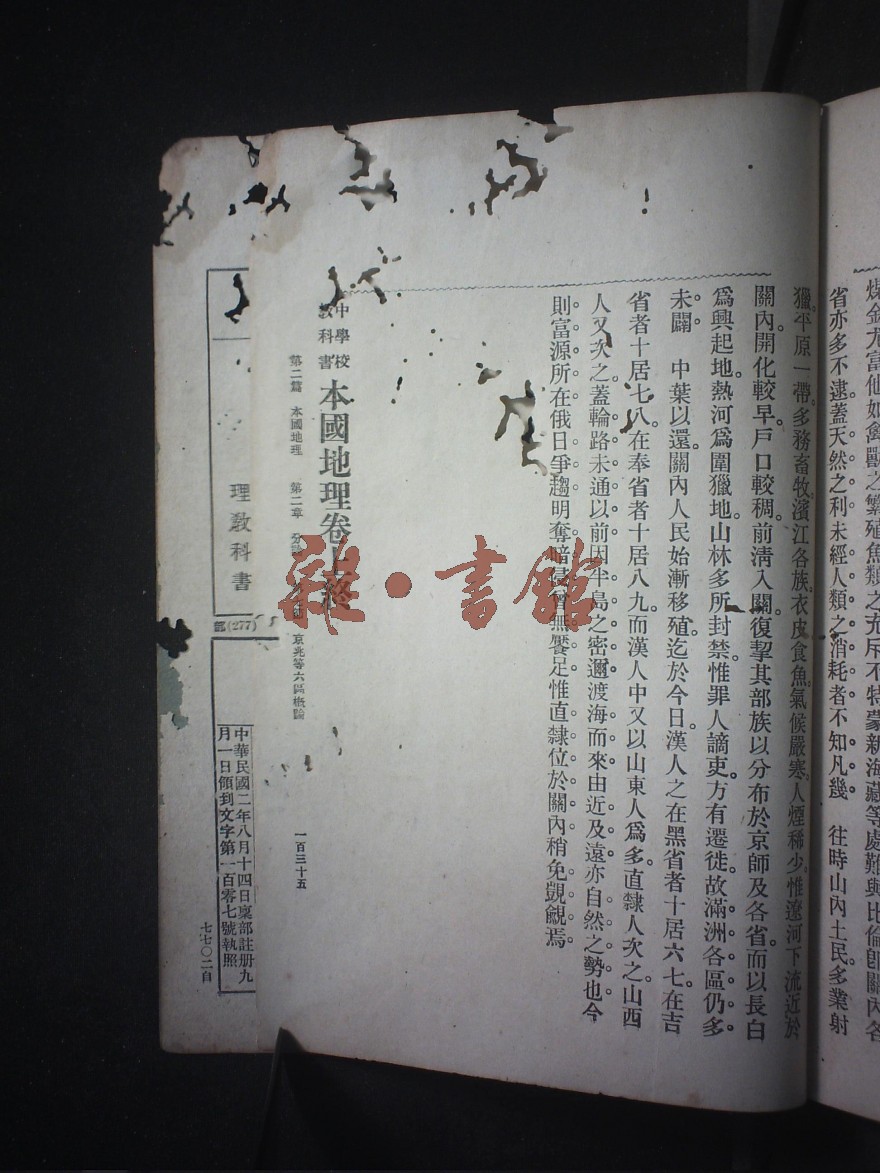 煤金尤富他如禽獸之繁殖魚類之充斥不特蒙新海藏等處難與比倫卽關內各
省亦多不逮蓋天然之利未經人類之消耗者不知凡幾　往時山內土民多業射
獵平原一帶多務畜牧濱江各族衣皮食魚氣候嚴寒人煙稀少惟遼河下流近於
關內開化較早戶口較稠前淸入關復挈其部族以分布於京師及各省而以長白
爲興起地熱河爲圍獵地山林多所封禁惟罪人謫吏方有遷徙故滿洲各區仍多
未闢　中葉以還關內人民始漸移殖迄於今日漢人之在黑省者十居六七在吉
省者十居七八在奉省者十居八九而漢人中又以山東人爲多直隸人次之山西
人又次之蓋輪路未通以前因半島之密邇渡海而來由近及遠亦自然之勢也今
則富源所在俄日爭趨明奪暗侵曾無饜足惟直隸位於關內稍免覬覦焉
中學校教科書 本國地理卷上終
第二篇　本國地理　第二章　分論　京兆等六區概論　一百三十五
理教科書
部(277)
中華民國二年八月十四日稟部註册九
月一日領到文字第一百零七號執照
七七〇二自
雜·書館